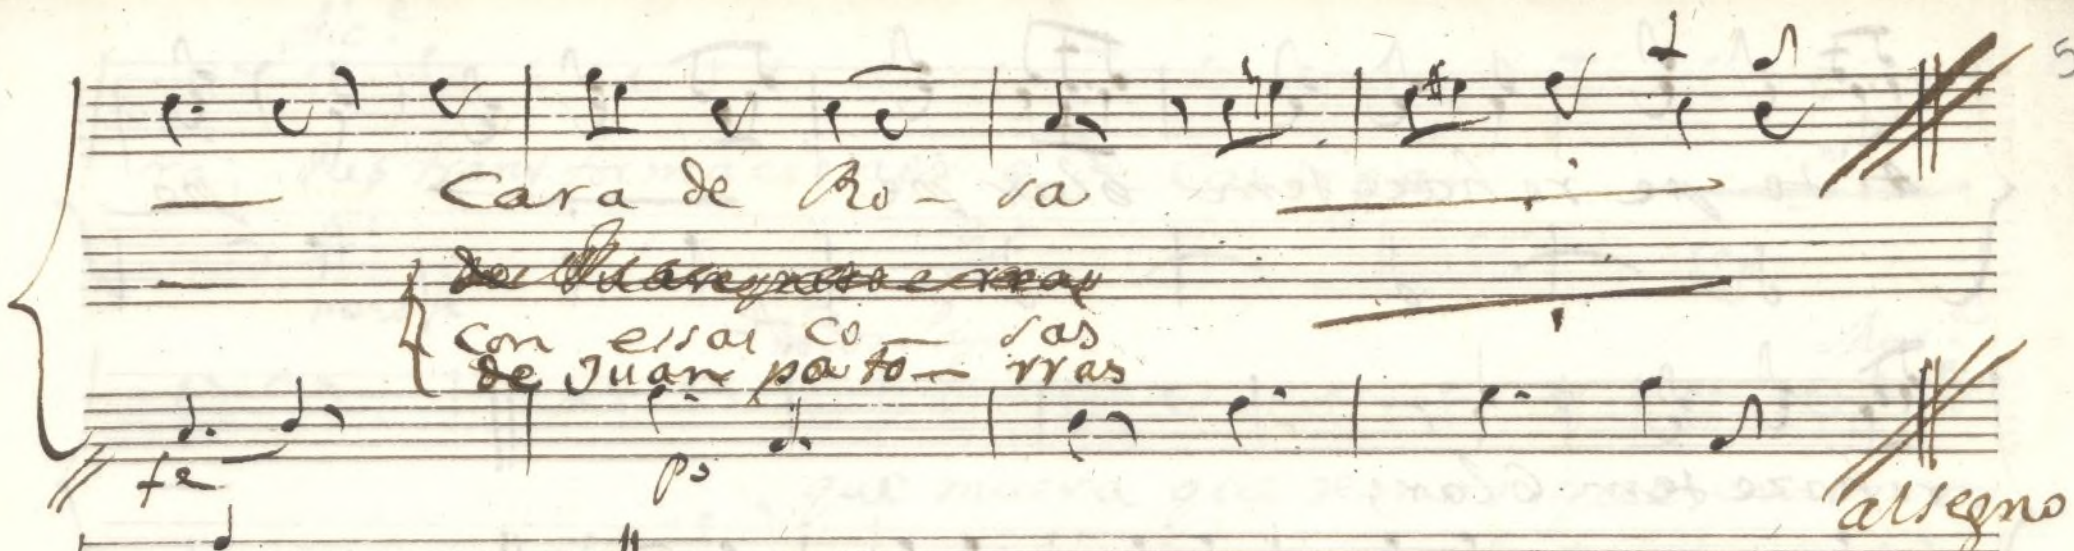 5
Cara de Ro - sa
con essas co - sas
de Juan pa to - rras
fe po
al segno